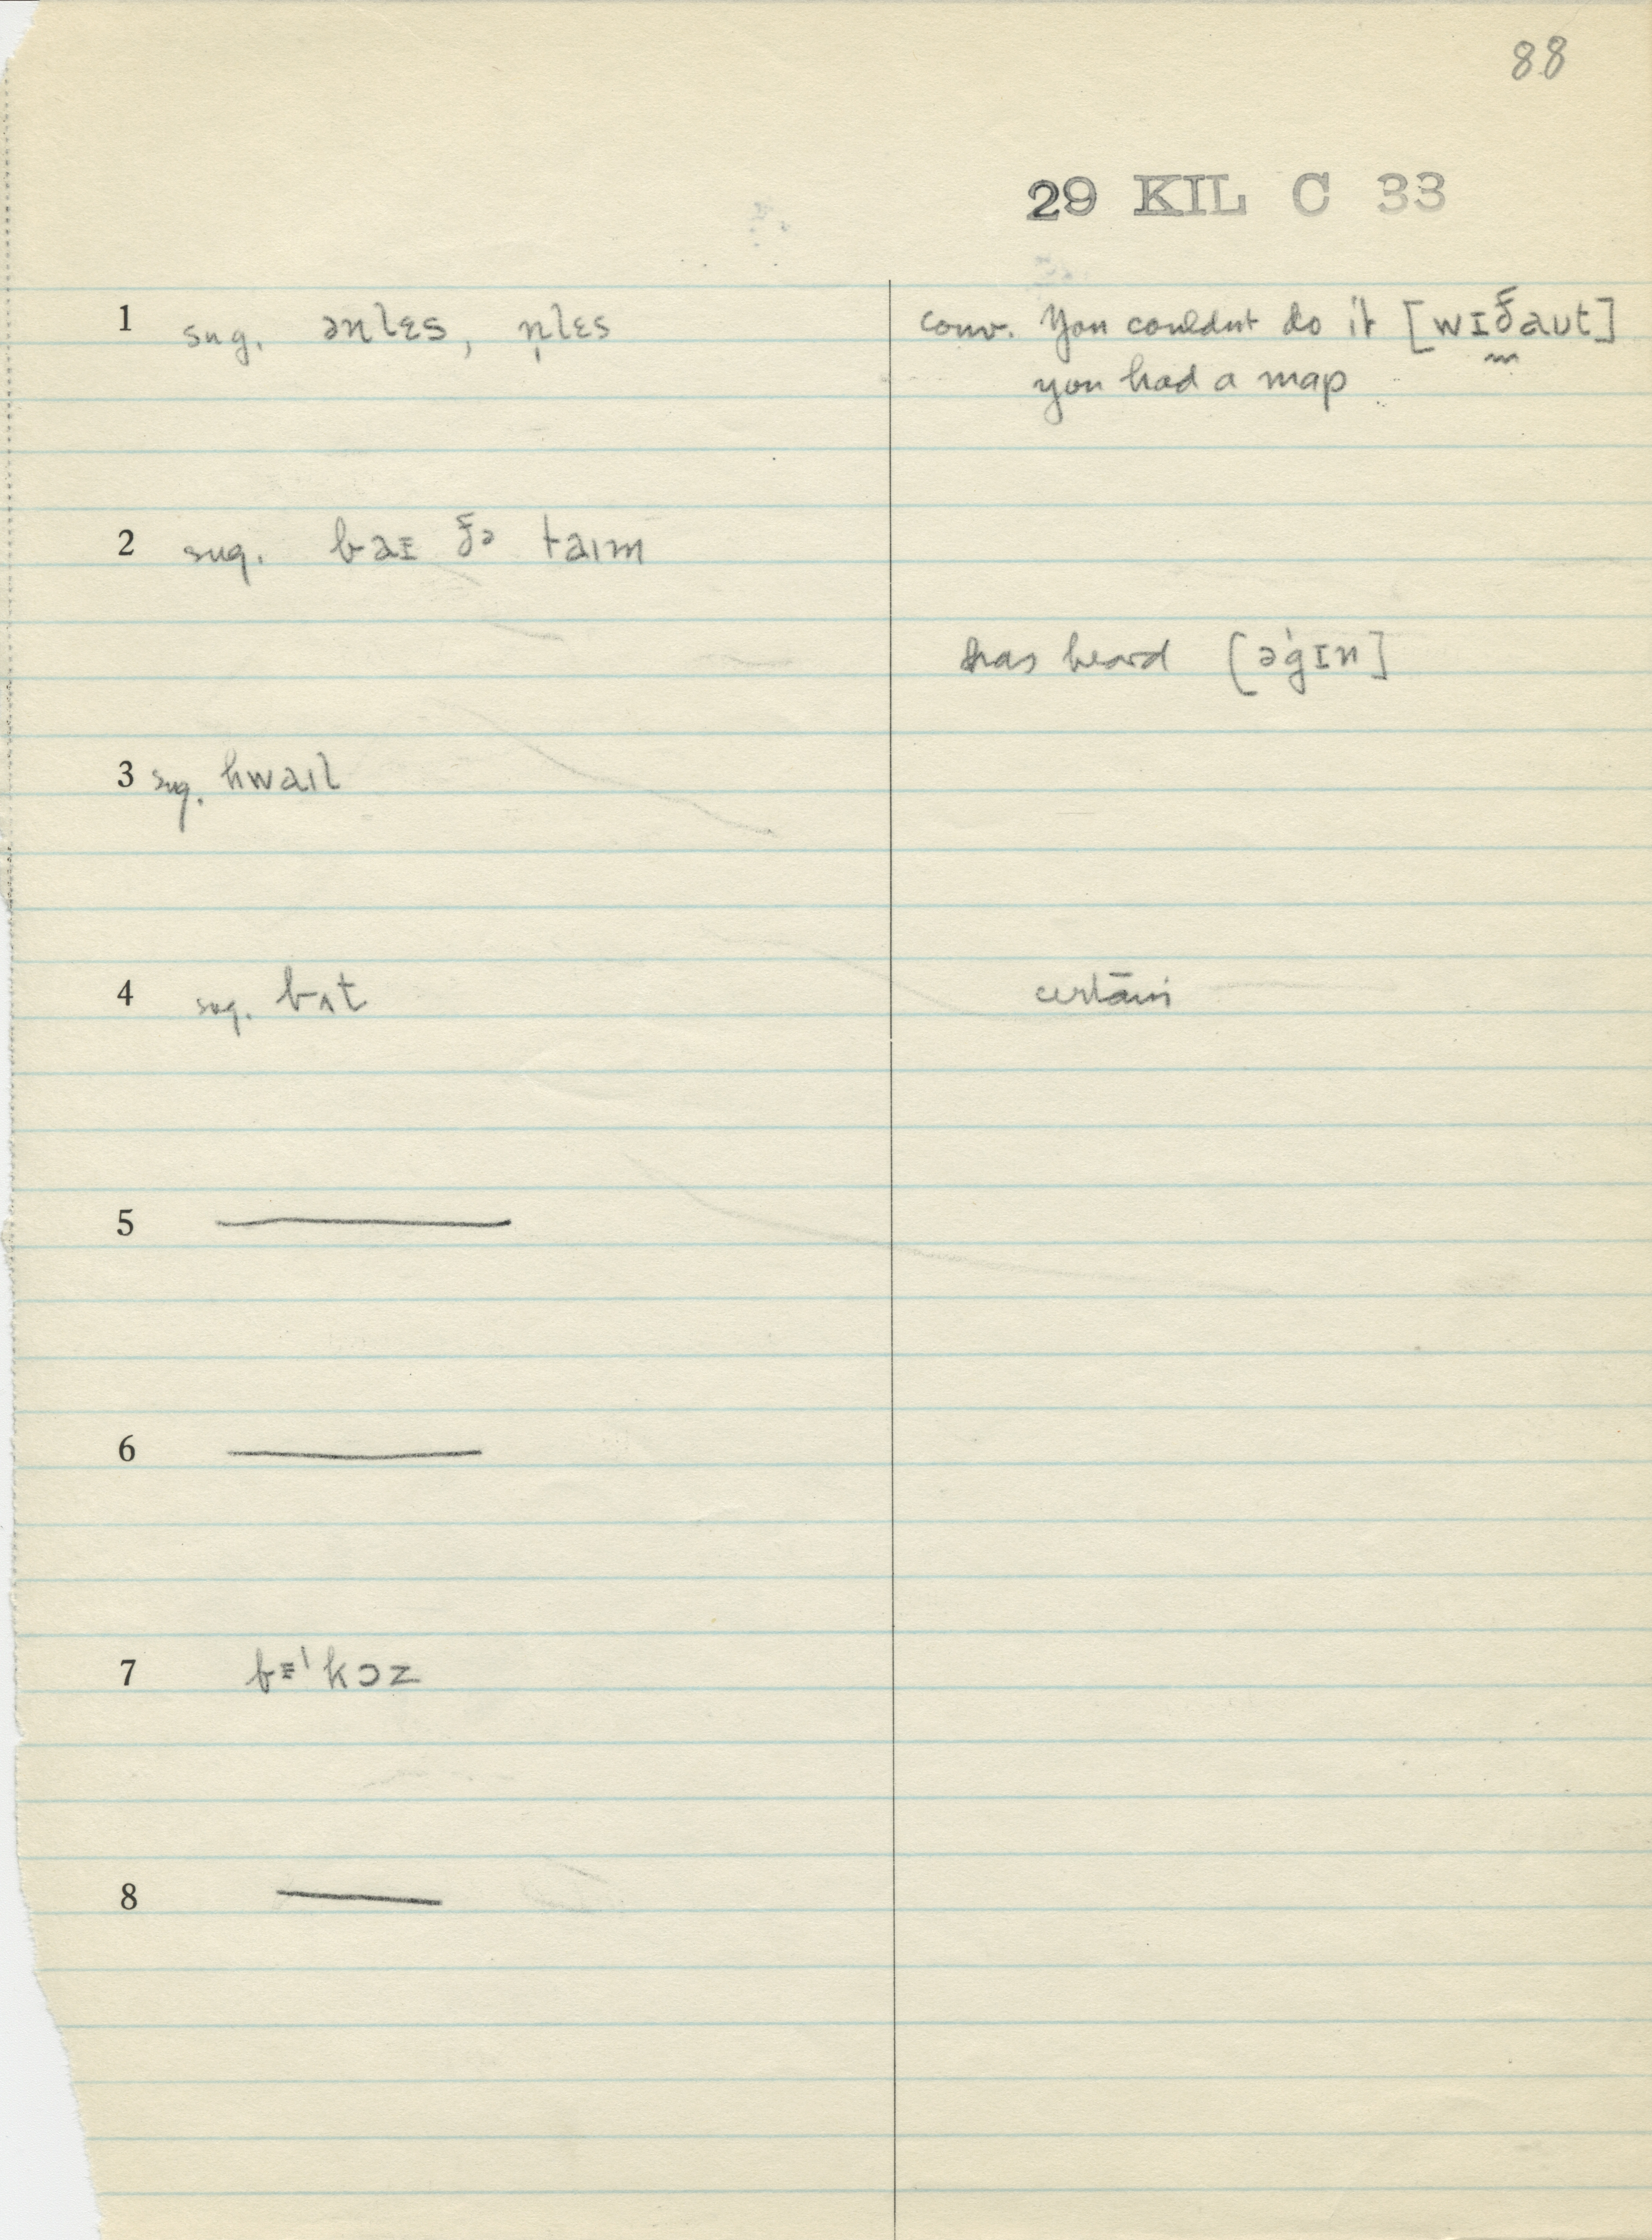 88
29 KIL C 33
1 sug. ənlɛs, n̩lɛs
conv. You couldnt do it [wɪðaʊt]
you had a map
2 sug. baɪ ðə taɪm
has heard [əˈgɪn]
3 sug. hwaɪl
4 sug. bʌt
certāin
5 ———
6 ———
7 bɪˈkɔz
8 ———